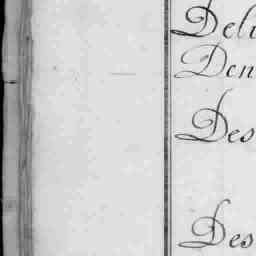 Deli
Den
Des
Des